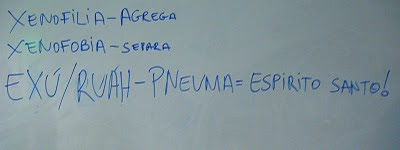 XENOFILIA-AGREGA
XENOFOBIA-SEPARA
EXÚ/RUÁH-PNEUMA=ESPIRITO SANTO!